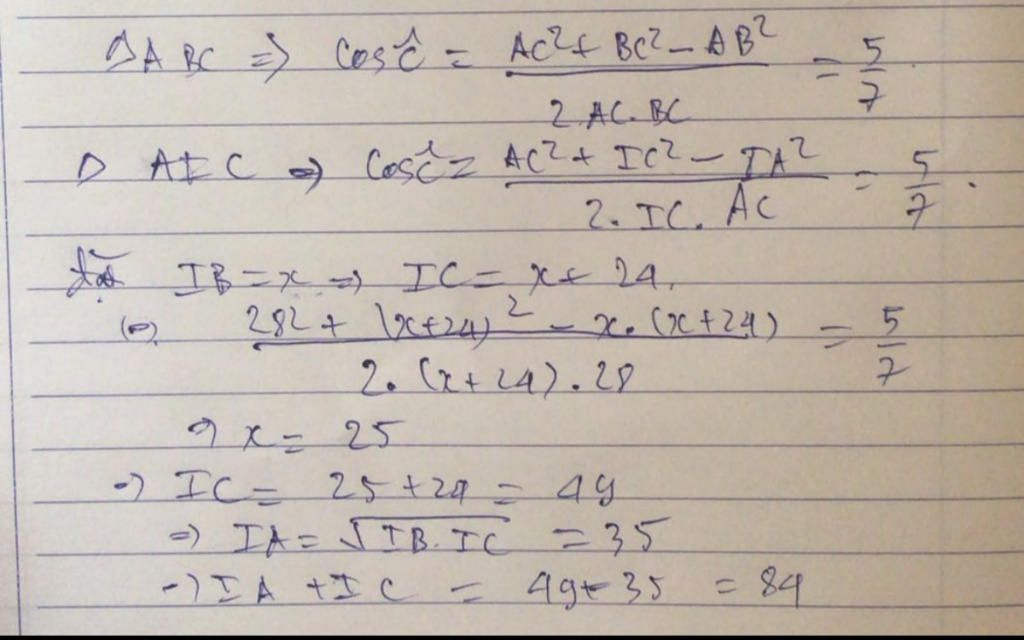 ΔABC ⇒ Cos Ĉ = (AC² + BC² - AB²) / (2.AC.BC) = 5/7.
Δ AIC ⇒ Cos Ĉ = (AC² + IC² - IA²) / (2.IC.AC) = 5/7.
đặt IB = x ⇒ IC = x + 24.
(⇒). (28² + (x+24)² - x.(x+24)) / (2.(x+24).28) = 5/7
⇒ x = 25
⇒ IC = 25 + 24 = 49
⇒ IA = √(IB.IC) = 35
⇒ IA + IC = 49 + 35 = 84